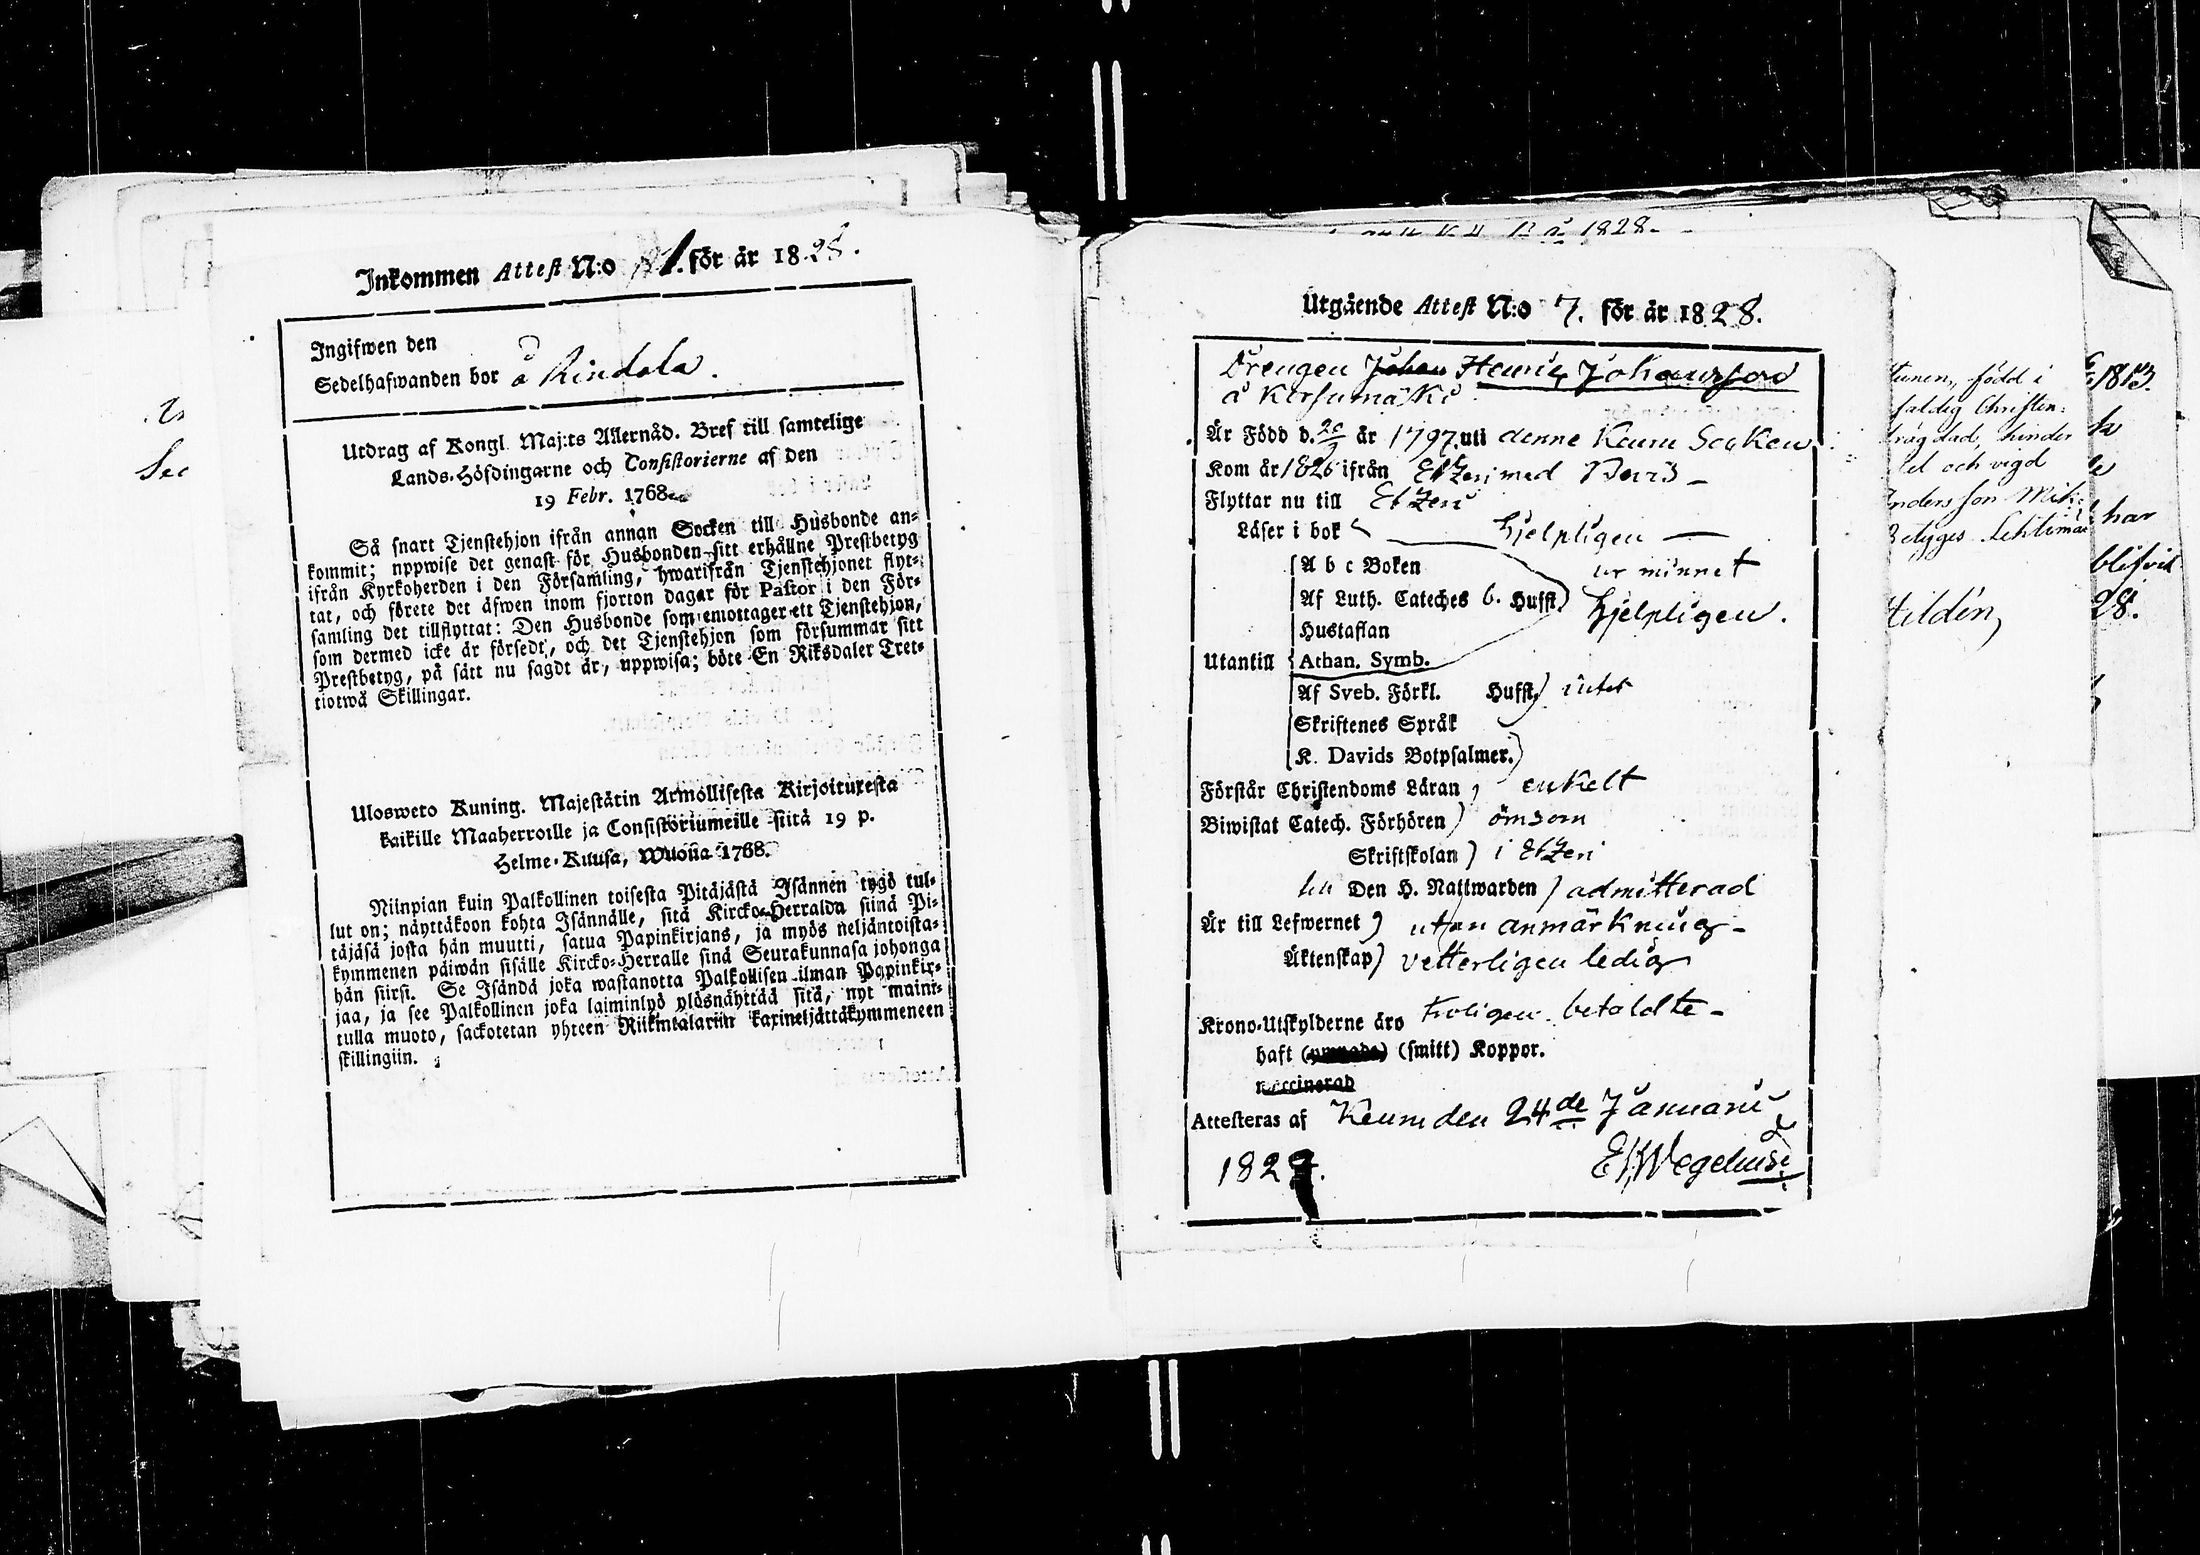 Inkommen Attest N:o 181. för år 1828.
Ingifwen den
Sedelhafwanden bor å Rindala.
Utdrag af Kongl. Maj:ts Allernåd. Bref till samtelige
Lands-Höfdingarne och Consistorierne af den
19 Febr. 1768.
Så snart Tjenstehjon ifrån annan Socken till Husbonde an-
kommit; uppwise det genast för Husbonden sitt erhållne Prestbetyg
ifrån Kyrkoherden i den Församling, hwarifrån Tjenstehjonet flyt-
tat, och förete det äfwen inom fjorton dagar för Pastor i den För-
samling det tillflyttat: Den Husbonde som emottager ett Tjenstehjon,
som dermed icke är försedt, och det Tjenstehjon som försummar sitt
Prestbetyg, på sätt nu sagdt är, uppwisa; böte En Riksdaler Tret-
tiotwå Skillingar.
Ulosweto Kuning. Majestätin Armollisesta Kirjoituxesta
kaikille Maaherroille ja Consistoriumeille siitä 19 p.
Helme-Kuusa, Wuona 1768.
Niinpian kuin Palkollinen toisesta Pitäjästä Isännen tygö tul-
lut on; näyttäkoon kohta Isännälle, sitä Kircko-Herralda siinä Pi-
täjäsä josta hän muutti, saatua Papinkirjans, ja myös neljäntoista-
kymmenen päiwän sisälle Kircko-Herralle sinä Seurakunnasa johonga
hän siirsi. Se Isändä joka wastanotta Palkollisen ilman Papinkir-
jaa, ja see Palkollinen joka laiminlyö ylösnäyttää sitä, nyt maini-
tulla muoto, sackotetan yhteen Riikintalariin kaxineljättäkymmeneen
skillingiin.
Utgående Attest N:o 7. för år 1828.
Drengen Johan Henric Johansson
å Kirsumäki
Är Född d. 20/9 år 1797 uti denne Keuru Socken
Kom år 1826 ifrån Etzeri med Bevis
Flyttar nu till Etzeri
Läser i bok hjelpligen
A b c Boken ur minnet
Af Luth. Cateches 6. Hufst. hjelpligen.
Hustaflan
Utantill Athan. Symb.
Af Sveb. Förkl. Hufst. intet
Skriftenes Språk
K. Davids Botpsalmer.
Förstår Christendoms Läran enkelt
Biwistat Catech. Förhören ömsom
Skriftskolan i Etzeri
Den H. Nattwarden admitterad
Är till Lefwernet utan anmärkning
Äktenskap vetterligen ledig
Krono-Utskylderne äro troligen betaldte
haft (smitt) Koppor.
Attesteras af Keuru den 24de Januarii
1828. Wegelius
1828
tunen, född i
faldig Christen-
hinder
och vigd
ndersson
tildén,
1813.
har
blifvit
28.